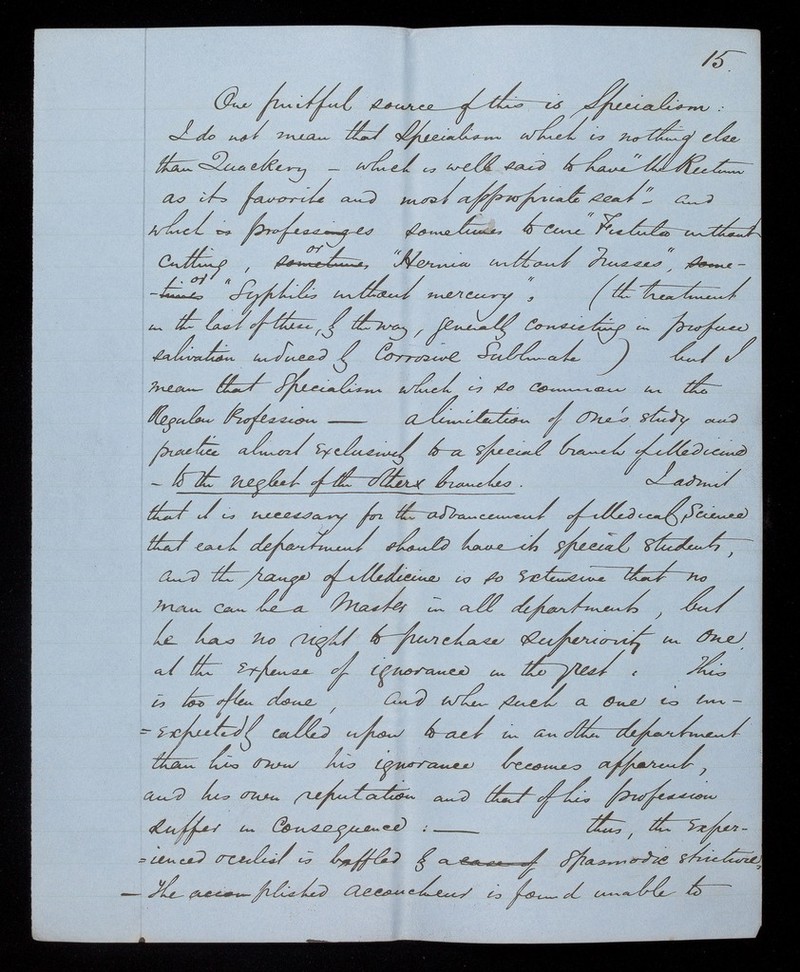 15.
One fruitful source of this is Specialism :
I do not mean that Specialism which is nothing else
than Quackery – which is well said to have "the Rectum
as its favorite and most appropriate seat" – and
which professes sometimes to cure "Fistula without
Cutting, sometimes or "Hernia without Trusses", some-
-times or "Syphilis without mercury", (the treatment
in the last of these, by the way, generally consisting in profuse
salivation induced by Corrosive Sublimate) but I
mean that Specialism which is so common in the
Regular Profession — a limitation of one's study and
practice almost exclusively to a special branch of Medicine
– to the neglect of the other branches. I admit
that it is necessary for the advancement of Medical Science
that each department should have its special students,
and the range of Medicine is so extensive that no
man can be a Master in all departments, but
he has no right to purchase superiority in one
at the expense of ignorance in the rest : This
is too often done, and when such a one is un-
=expectedly called upon to act in another department
than his own his ignorance becomes apparent,
and his own reputation and that of his Profession
suffer in Consequence : — thus, the Exper-
=ienced oculist is baffled by a case of Spasmodic stricture,
– The accomplished accoucheur is found unable to